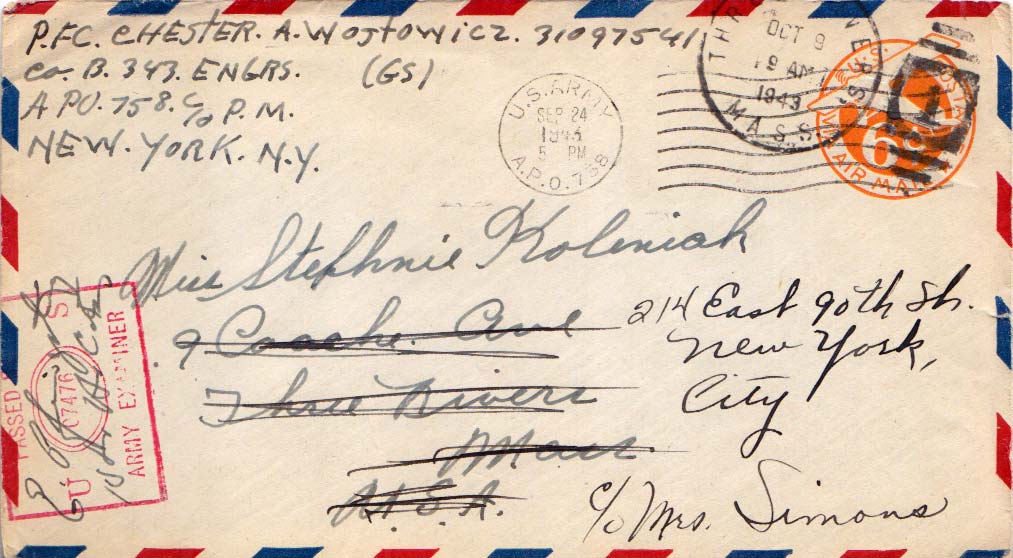 P.F.C. CHESTER. A. WOJTOWICZ. 31097541
CO. B. 343. ENGRS. (GS)
A PO. 758. C/o P.M.
NEW. YORK. N.Y.
U.S. ARMY
SEP 24
1943
5 PM
A.P.O. 758
OCT 9
9 AM
1943
MASS.
VIA AIR MAIL
6¢
Miss Stephnie Koleniak
9 Coache Ave
Three Rivers
Mass
U.S.A.
214 East 90th St.
New York,
City
c/o Mrs. Simons
PASSED
U S
07476
ARMY EXAMINER